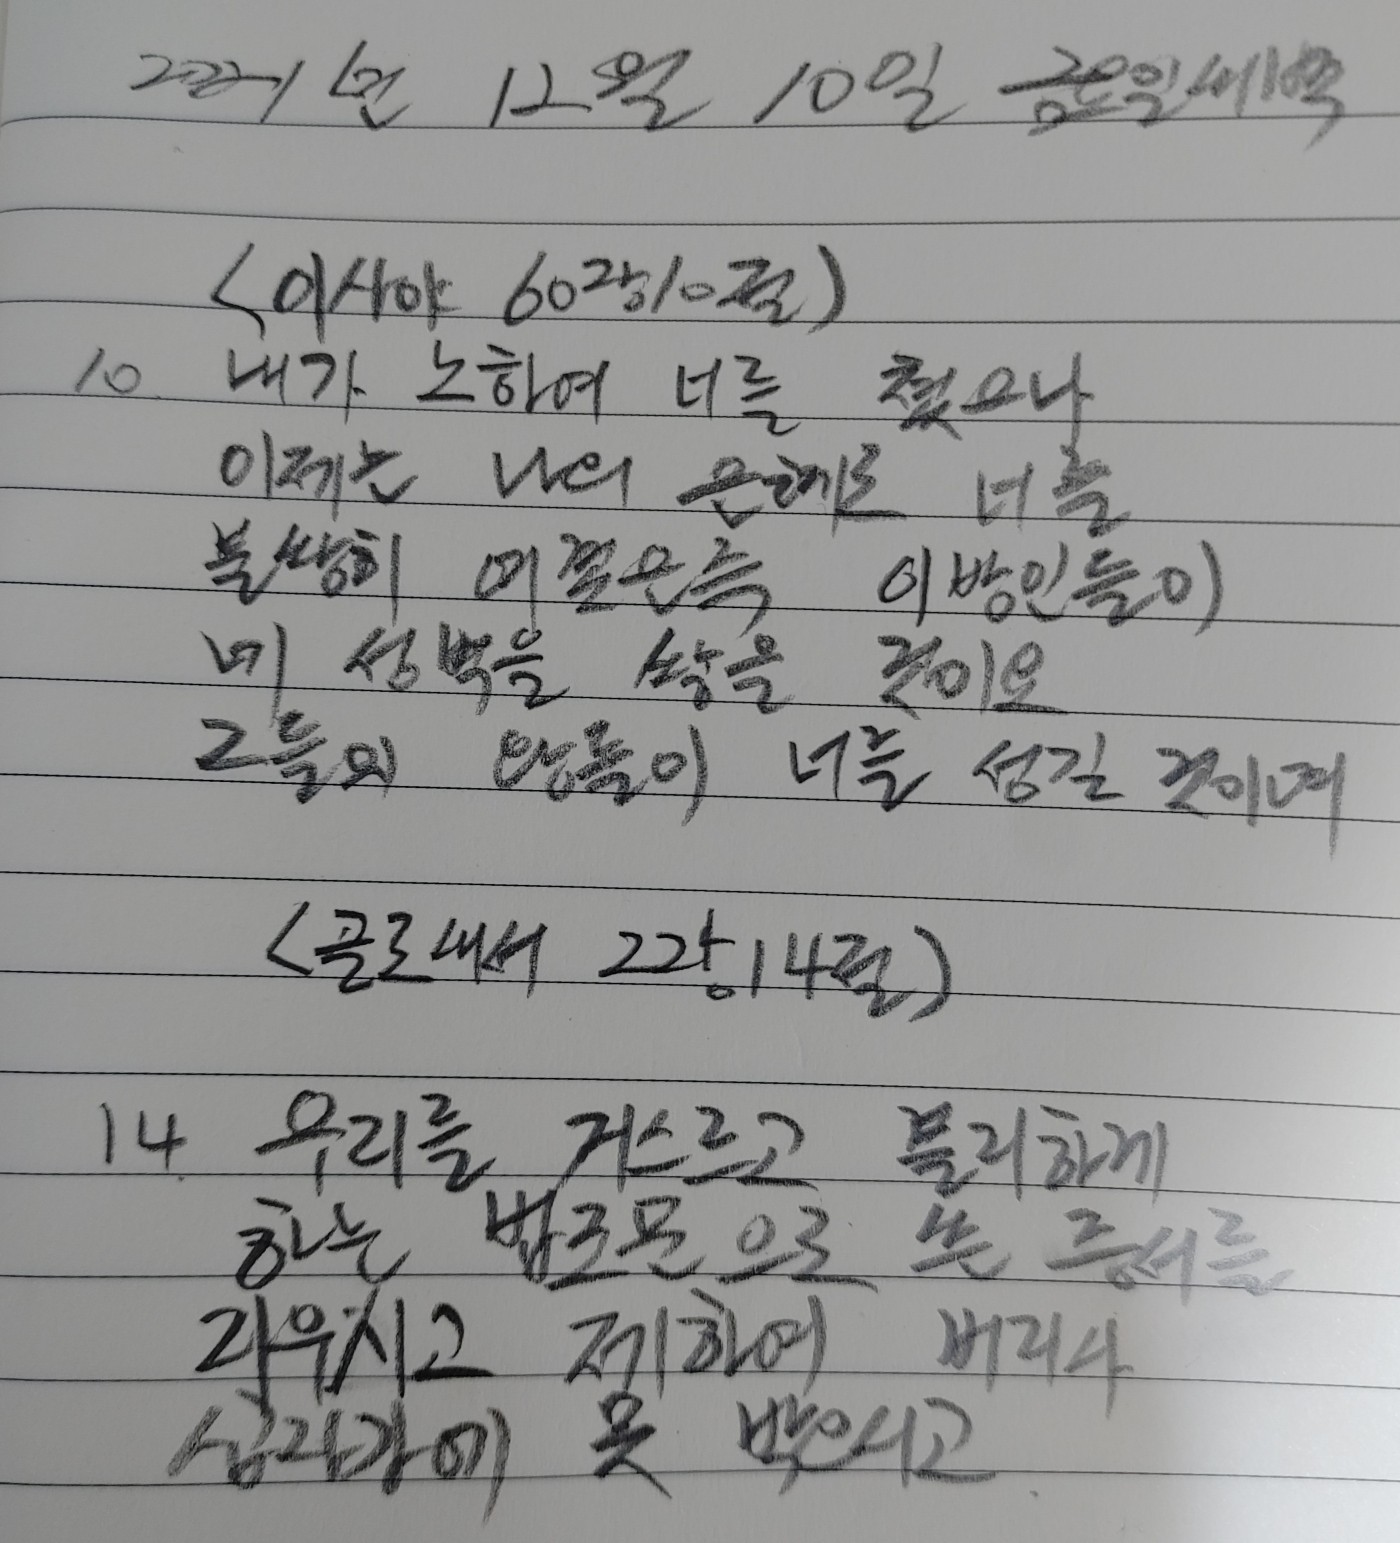 2021년 12월 10일 금요일새벽
<이사야 60장10절>
10 내가 노하여 너를 쳤으나
이제는 나의 은혜로 너를
불쌍히 여겼은즉 이방인들이
네 성벽을 쌓을 것이요
그들의 왕들이 너를 섬길 것이며
<골로새서 2장14절>
14 우리를 거스르고 불리하게
하는 법조문으로 쓴 증서를
지우시고 제하여 버리사
십자가에 못 박으시고